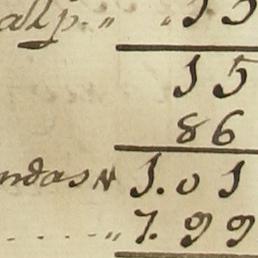 alp. „
15
86
ndas 1.01
..... „ 7.99